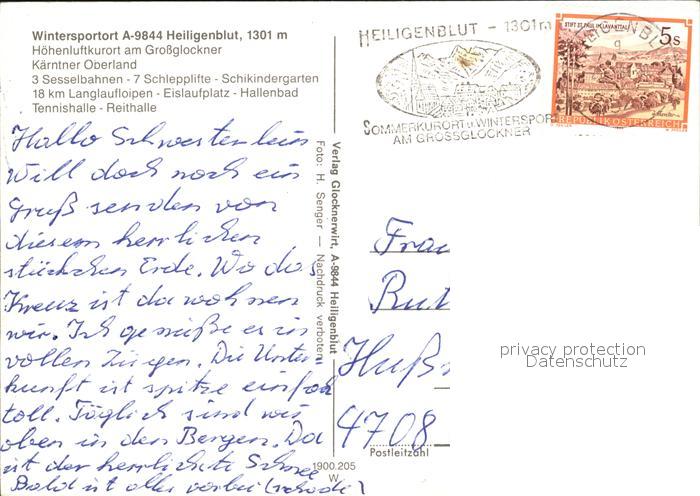 Wintersportort A-9844 Heiligenblut, 1301 m
Höhenluftkurort am Großglockner
Kärntner Oberland
3 Sesselbahnen - 7 Schlepplifte - Schikindergarten
18 km Langlaufloipen - Eislaufplatz - Hallenbad
Tennishalle - Reithalle
Hallo Schwesterlein
Will doch noch ein
Gruß senden von
diesem herrlichen
stückchen Erde. Wo das
Kreuz ist da wohnen
wir. Ich genieße es in
vollen Zügen. Die Unter-
kunft ist spitze einfach
toll. Täglich sind wir
oben in den Bergen. Da
ist der herrlichste Schnee
Bald ist alles vorbei (schade)
Verlag Glocknerwirt, A-9844 Heiligenblut
Foto: H. Senger — Nachdruck verboten
1900.205
W
HEILIGENBLUT - 1301m
SOMMERKURORT u. WINTERSPOR
AM GROSSGLOCKNER
STIFT ST. PAUL IM LAVANTTAL
5 s
REPUBLIK ÖSTERREICH
HEILIGENBL
9
Frau
Rut
Huß
4708
Postleitzahl
privacy protection
Datenschutz